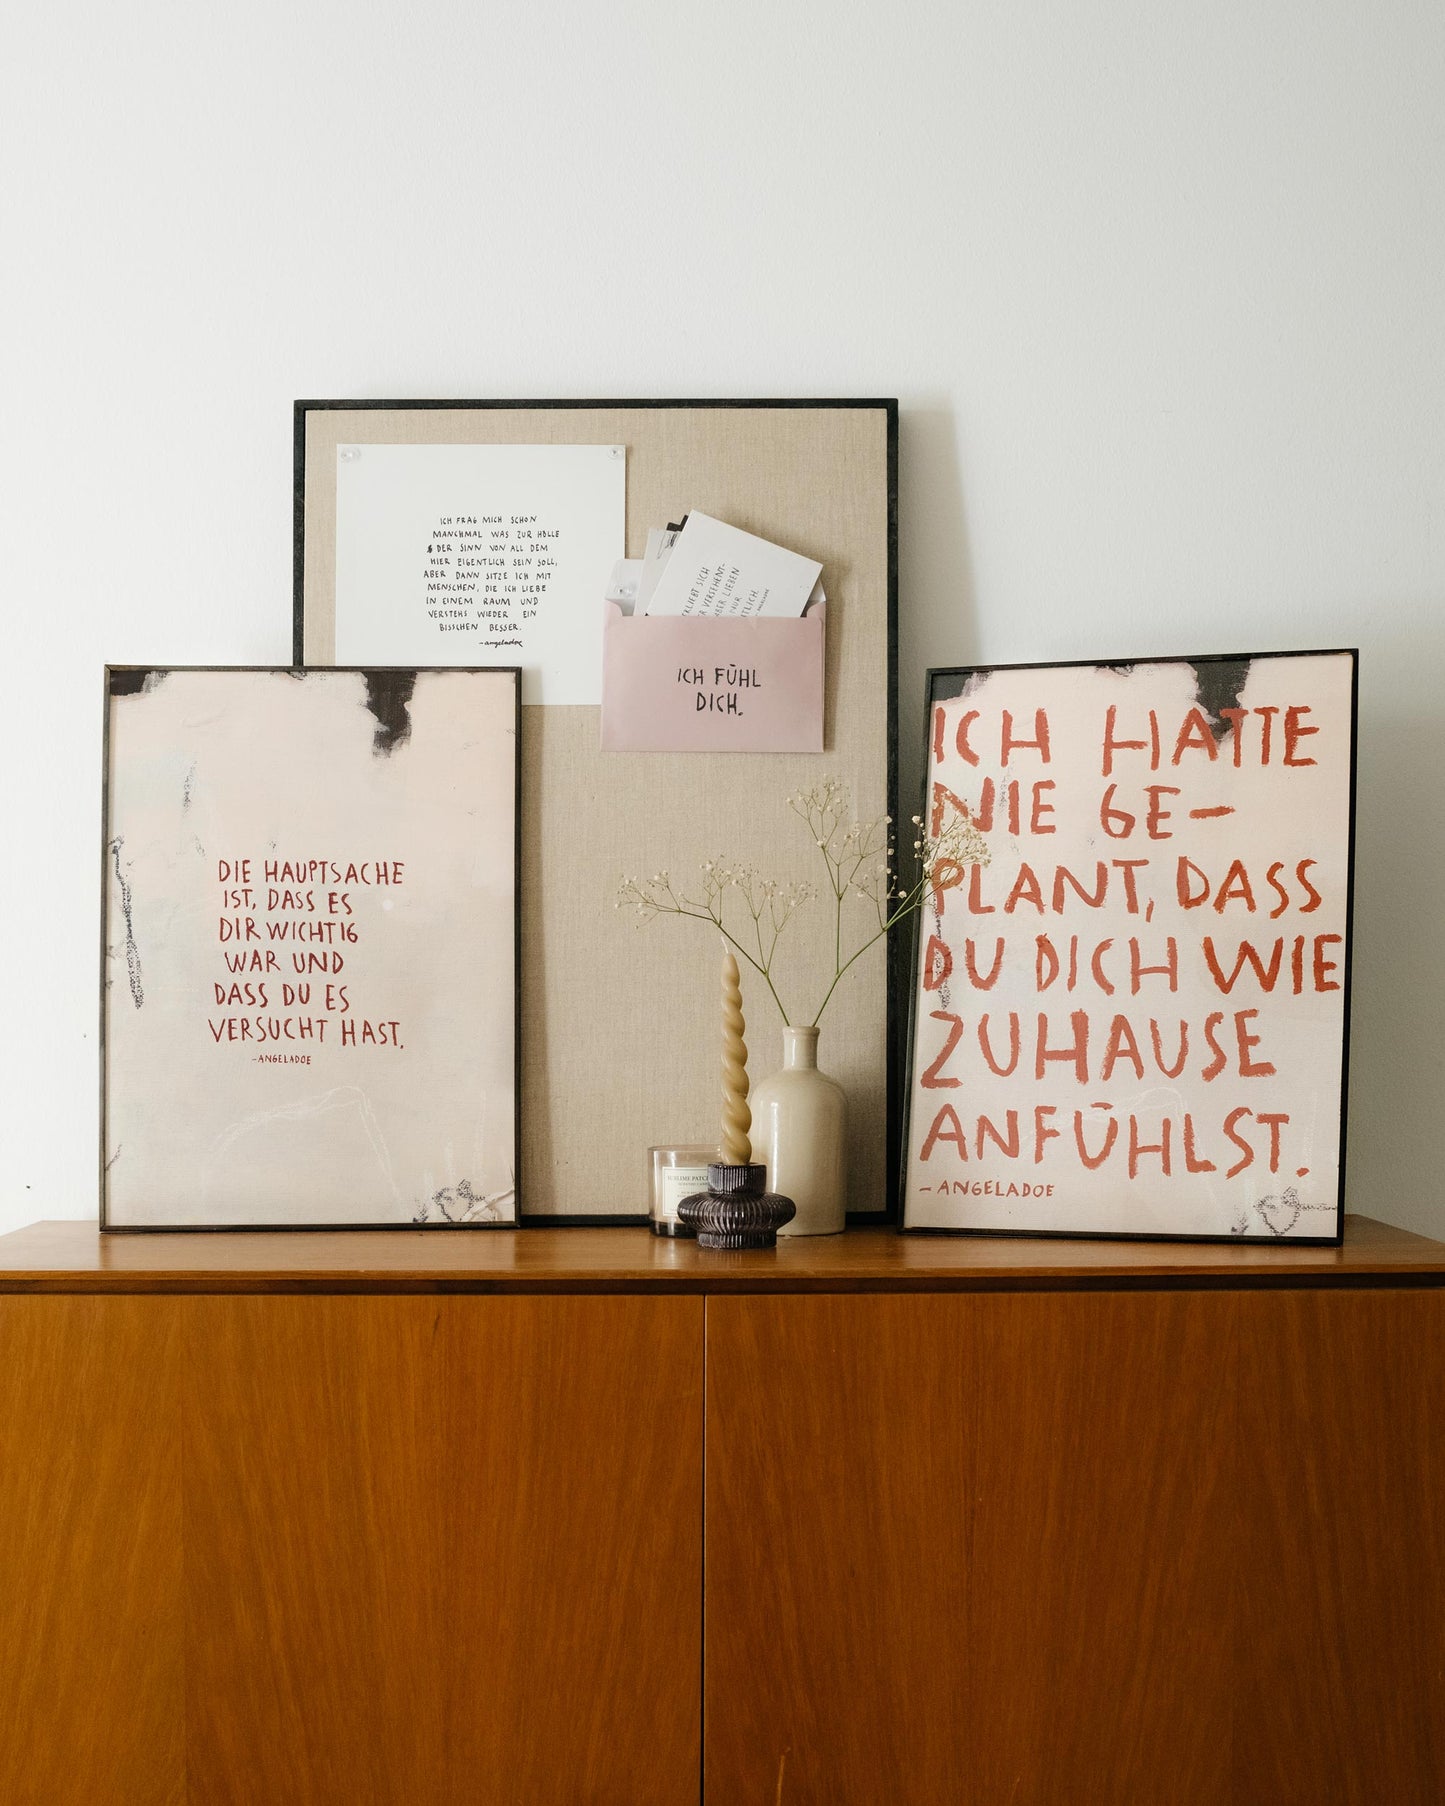 ICH FRAG MICH SCHON
MANCHMAL WAS ZUR HÖLLE
DER SINN VON ALL DEM
HIER EIGENTLICH SEIN SOLL,
ABER DANN SITZE ICH MIT
MENSCHEN, DIE ICH LIEBE
IN EINEM RAUM UND
VERSTEHS WIEDER EIN
BISSCHEN BESSER.
-angeladoe
VERSEHENT-
LIEBEN
NUR
ICH FÜHL
DICH.
DIE HAUPTSACHE
IST, DASS ES
DIR WICHTIG
WAR UND
DASS DU ES
VERSUCHT HAST.
-ANGELADOE
SUBLIME
ICH HATTE
NIE GE-
PLANT, DASS
DU DICH WIE
ZUHAUSE
ANFÜHLST.
- ANGELADOE